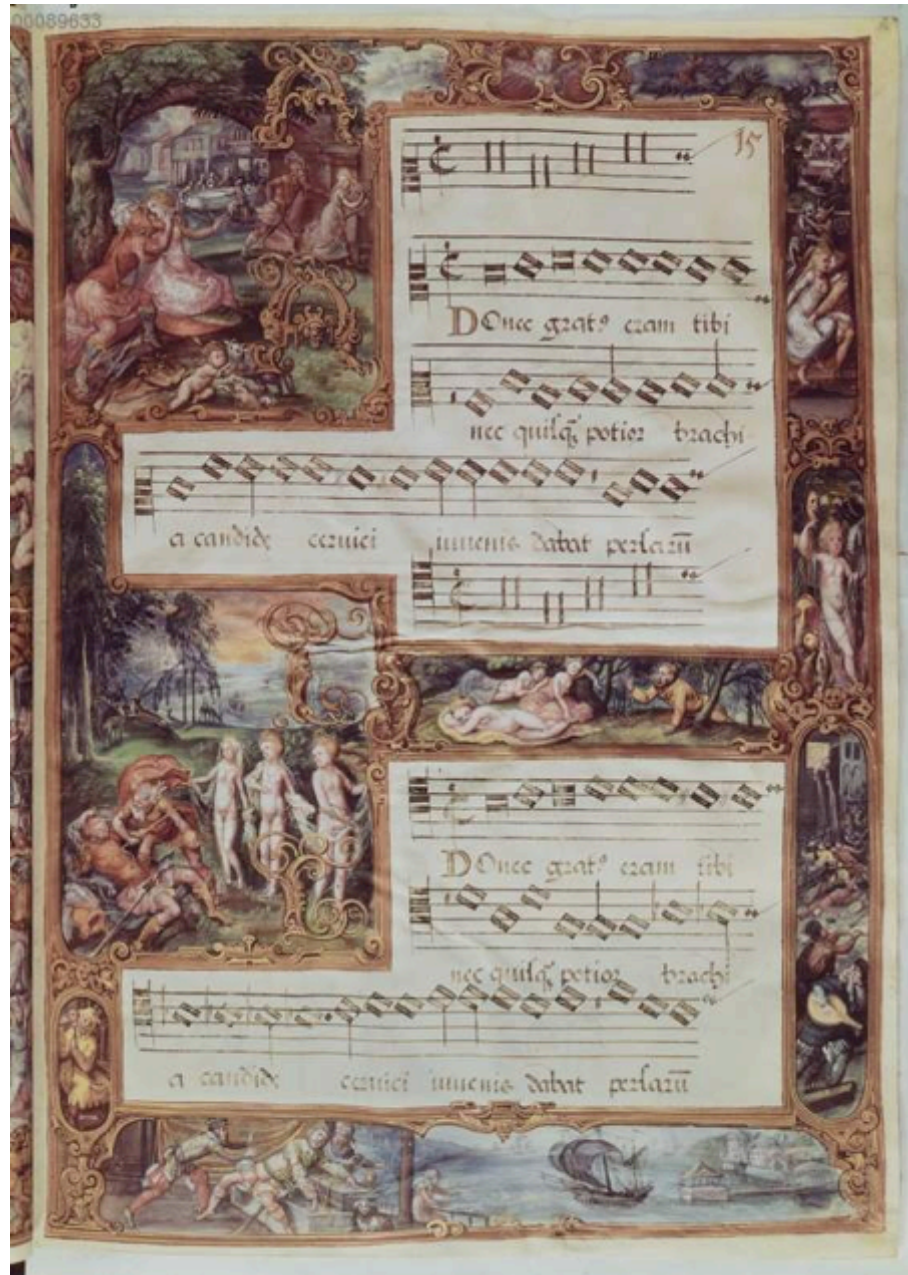 00089633
15
DOnec grat⁹ eram tibi
nec quisq̃ potior brachi
a candidę cervici iuvenis dabat persarũ
DOnec grat⁹ eram tibi
nec quisq̃ potior brachi
a candidę cervici iuvenis dabat persarũ